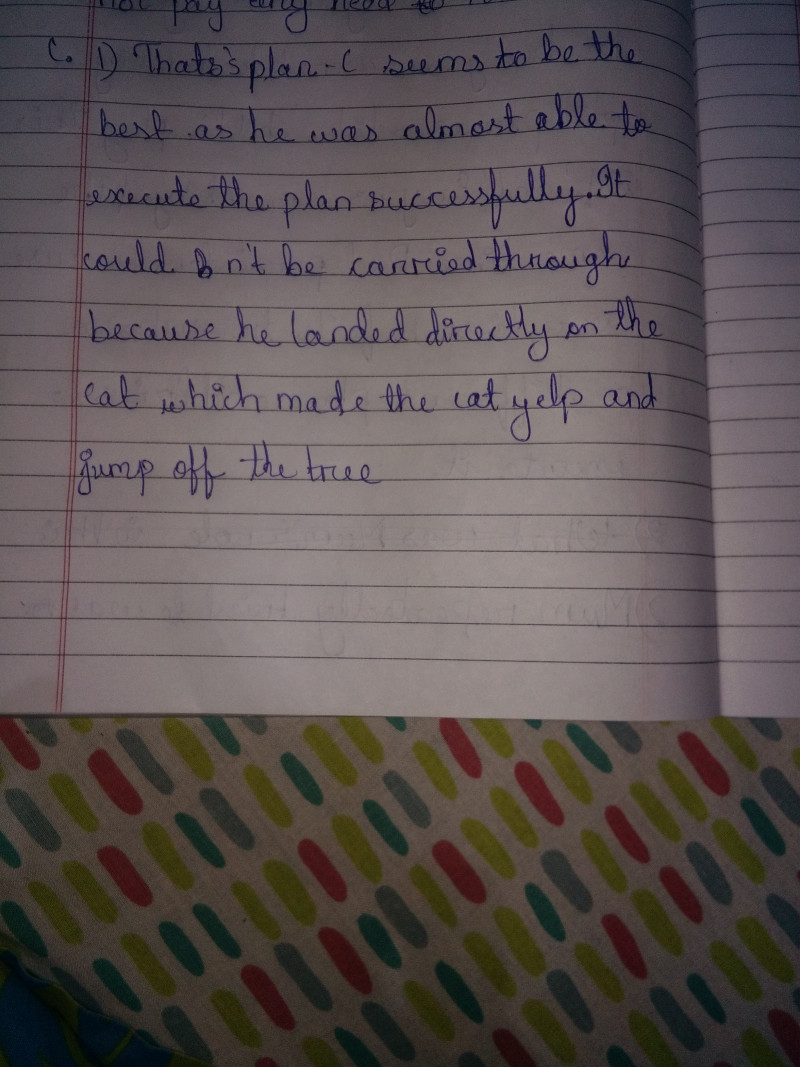 not pay any heed to
C. 1) Thats's plan-C seems to be the
best as he was almost able to
execute the plan successfully. It
could n't be carried through
because he landed directly on the
cat which made the cat yelp and
jump off the tree